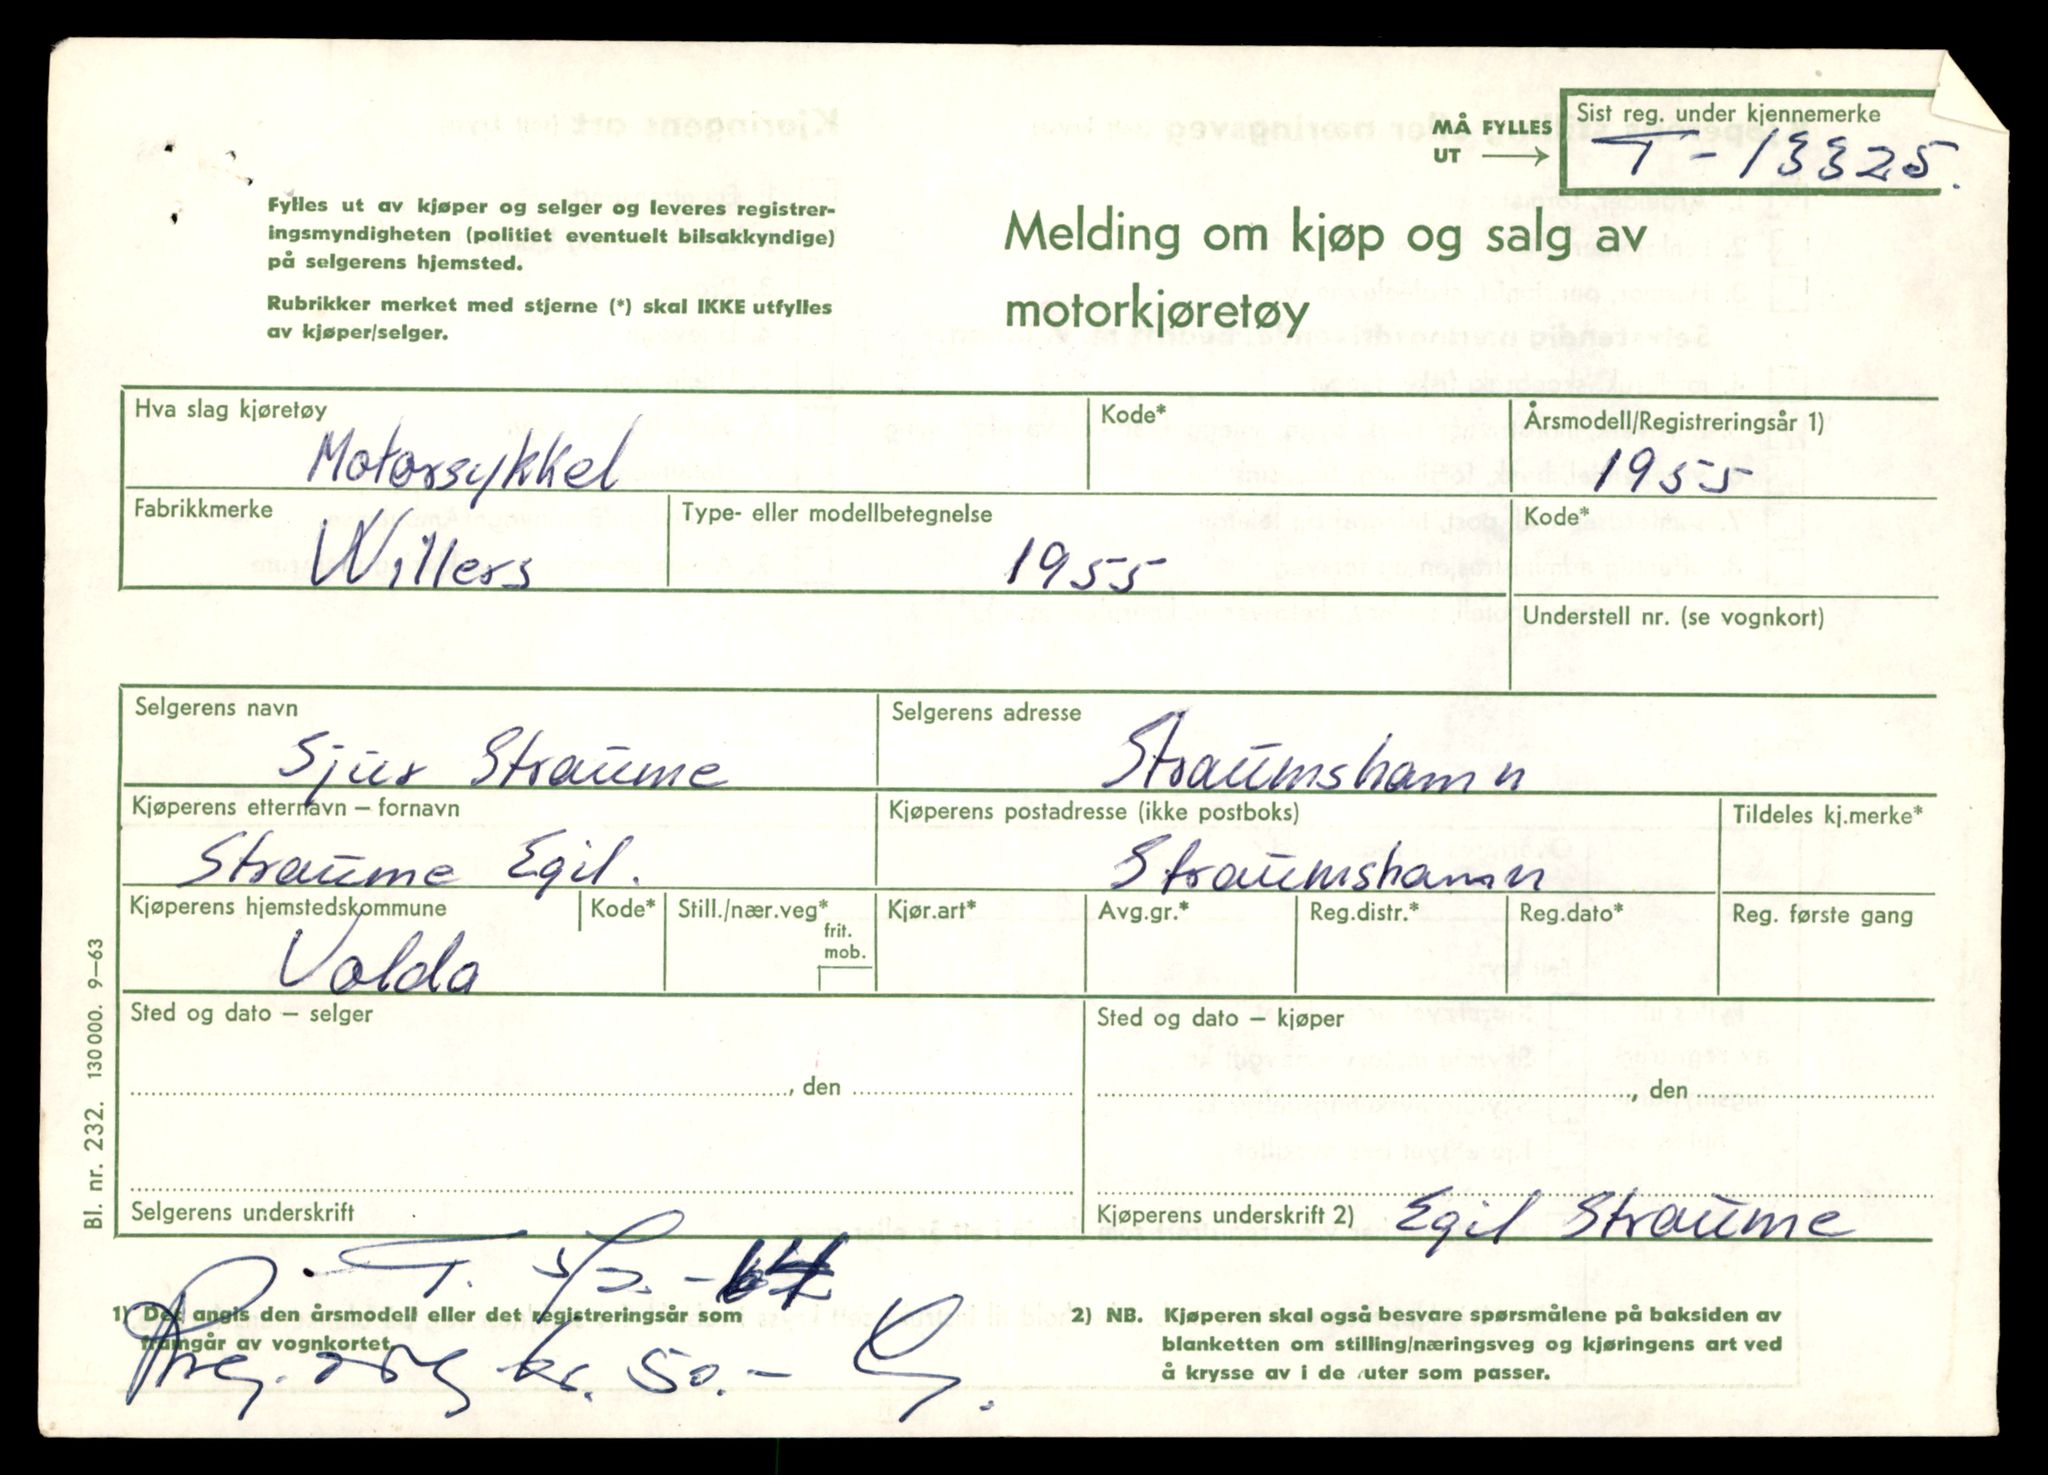 MÅ FYLLES
UT
Sist reg. under kjennemerke
T-13325.
Fylles ut av kjøper og selger og leveres registrer-
ingsmyndigheten (politiet eventuelt bilsakkyndige)
på selgerens hjemsted.
Rubrikker merket med stjerne (*) skal IKKE utfylles
av kjøper/selger.
Melding om kjøp og salg av
motorkjøretøy
Hva slag kjøretøy
Motorsykkel
Kode*
Årsmodell/Registreringsår 1)
1955
Fabrikkmerke
Willers
Type- eller modellbetegnelse
1955
Kode*
Understell nr. (se vognkort)
Selgerens navn
Sjur Straume
Selgerens adresse
Straumshamn
Kjøperens etternavn – fornavn
Straume Egil.
Kjøperens postadresse (ikke postboks)
Straumshamn
Tildeles kj.merke*
Kjøperens hjemstedskommune
Volda
Kode*
Still./nær.veg*
frit.
mob.
Kjør.art*
Avg.gr.*
Reg.distr.*
Reg.dato*
Reg. første gang
Sted og dato – selger
, den
Sted og dato – kjøper
, den
Selgerens underskrift
Kjøperens underskrift 2) Egil Straume
Bl. nr. 232. 130 000. 9–63
1) Det angis den årsmodell eller det registreringsår som
framgår av vognkortet.
kr. 50.-
2) NB. Kjøperen skal også besvare spørsmålene på baksiden av
blanketten om stilling/næringsveg og kjøringens art ved
å krysse av i de ruter som passer.